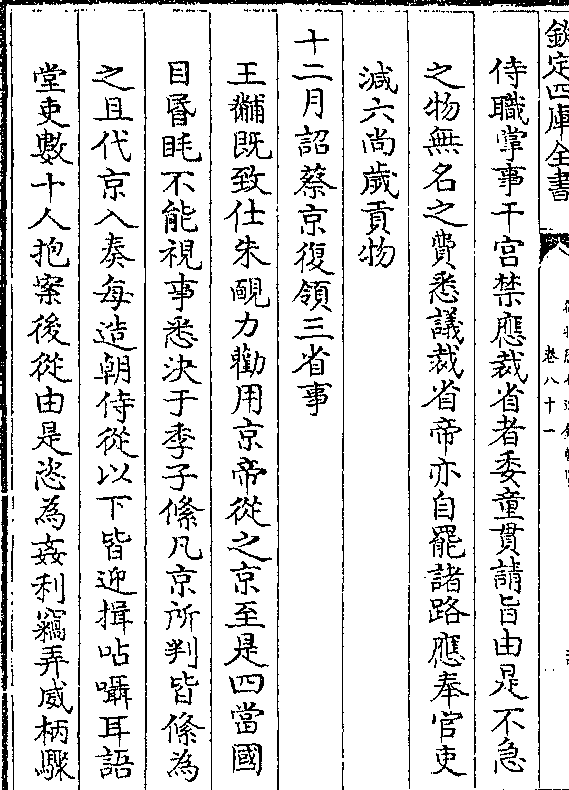 欽定四庫全書
卷八十一
侍職掌事干宫禁應裁省者委童貫請旨由是不急
之物無名之費悉議裁省帝亦自罷諸路應奉官吏
減六尚歲貢物
十二月詔蔡京復領三省事
王黼既致仕朱勔力勸用京帝從之京至是四當國
目昏眊不能視事悉決于季子絛凡京所判皆絛為
之且代京入奏每造朝侍從以下皆迎揖呫囁耳語
堂吏數十人抱案後從由是恣為姦利竊弄威柄驟